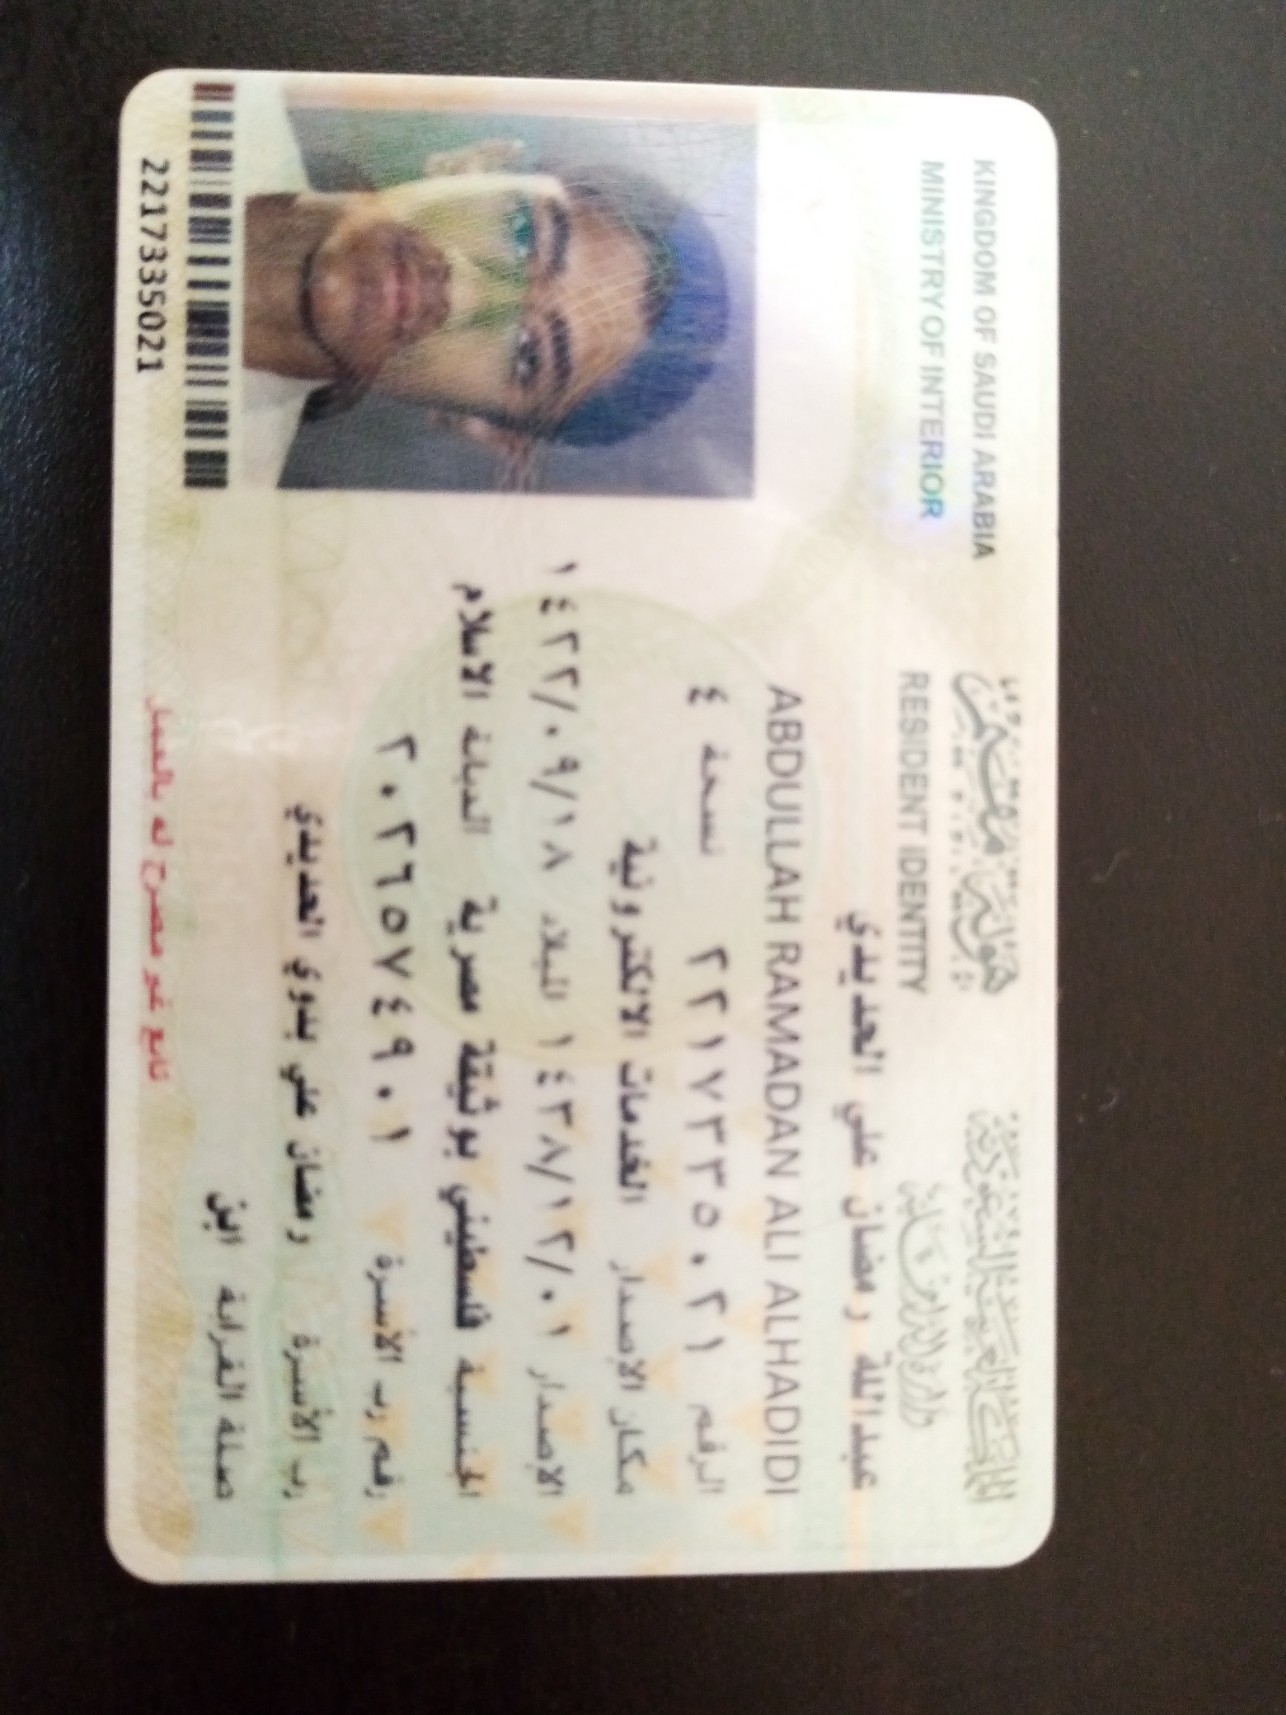 المملكة العربية السعودية
وزارة الداخلية
هوية مقيم
RESIDENT IDENTITY
KINGDOM OF SAUDI ARABIA
MINISTRY OF INTERIOR
عبدالله رمضان علي الحديدي
ABDULLAH RAMADAN ALI ALHADIDI
الرقم ٢٢١٧٣٣٥٠٢١ نسخة ٤
مكان الإصدار الخدمات الالكترونية
الإصدار ١٤٣٨/١٢/٠١ الميلاد ١٤٢٢/٠٩/١٨
الجنسية فلسطيني بوثيقة مصرية الديانة الاسلام
رقم رب الأسرة ٢٠٢٦٥٧٤٩٠١
رب الأسرة رمضان علي بدوي الحديدي
صلة القرابة ابن
تابع غير مصرح له بالعمل
2217335021